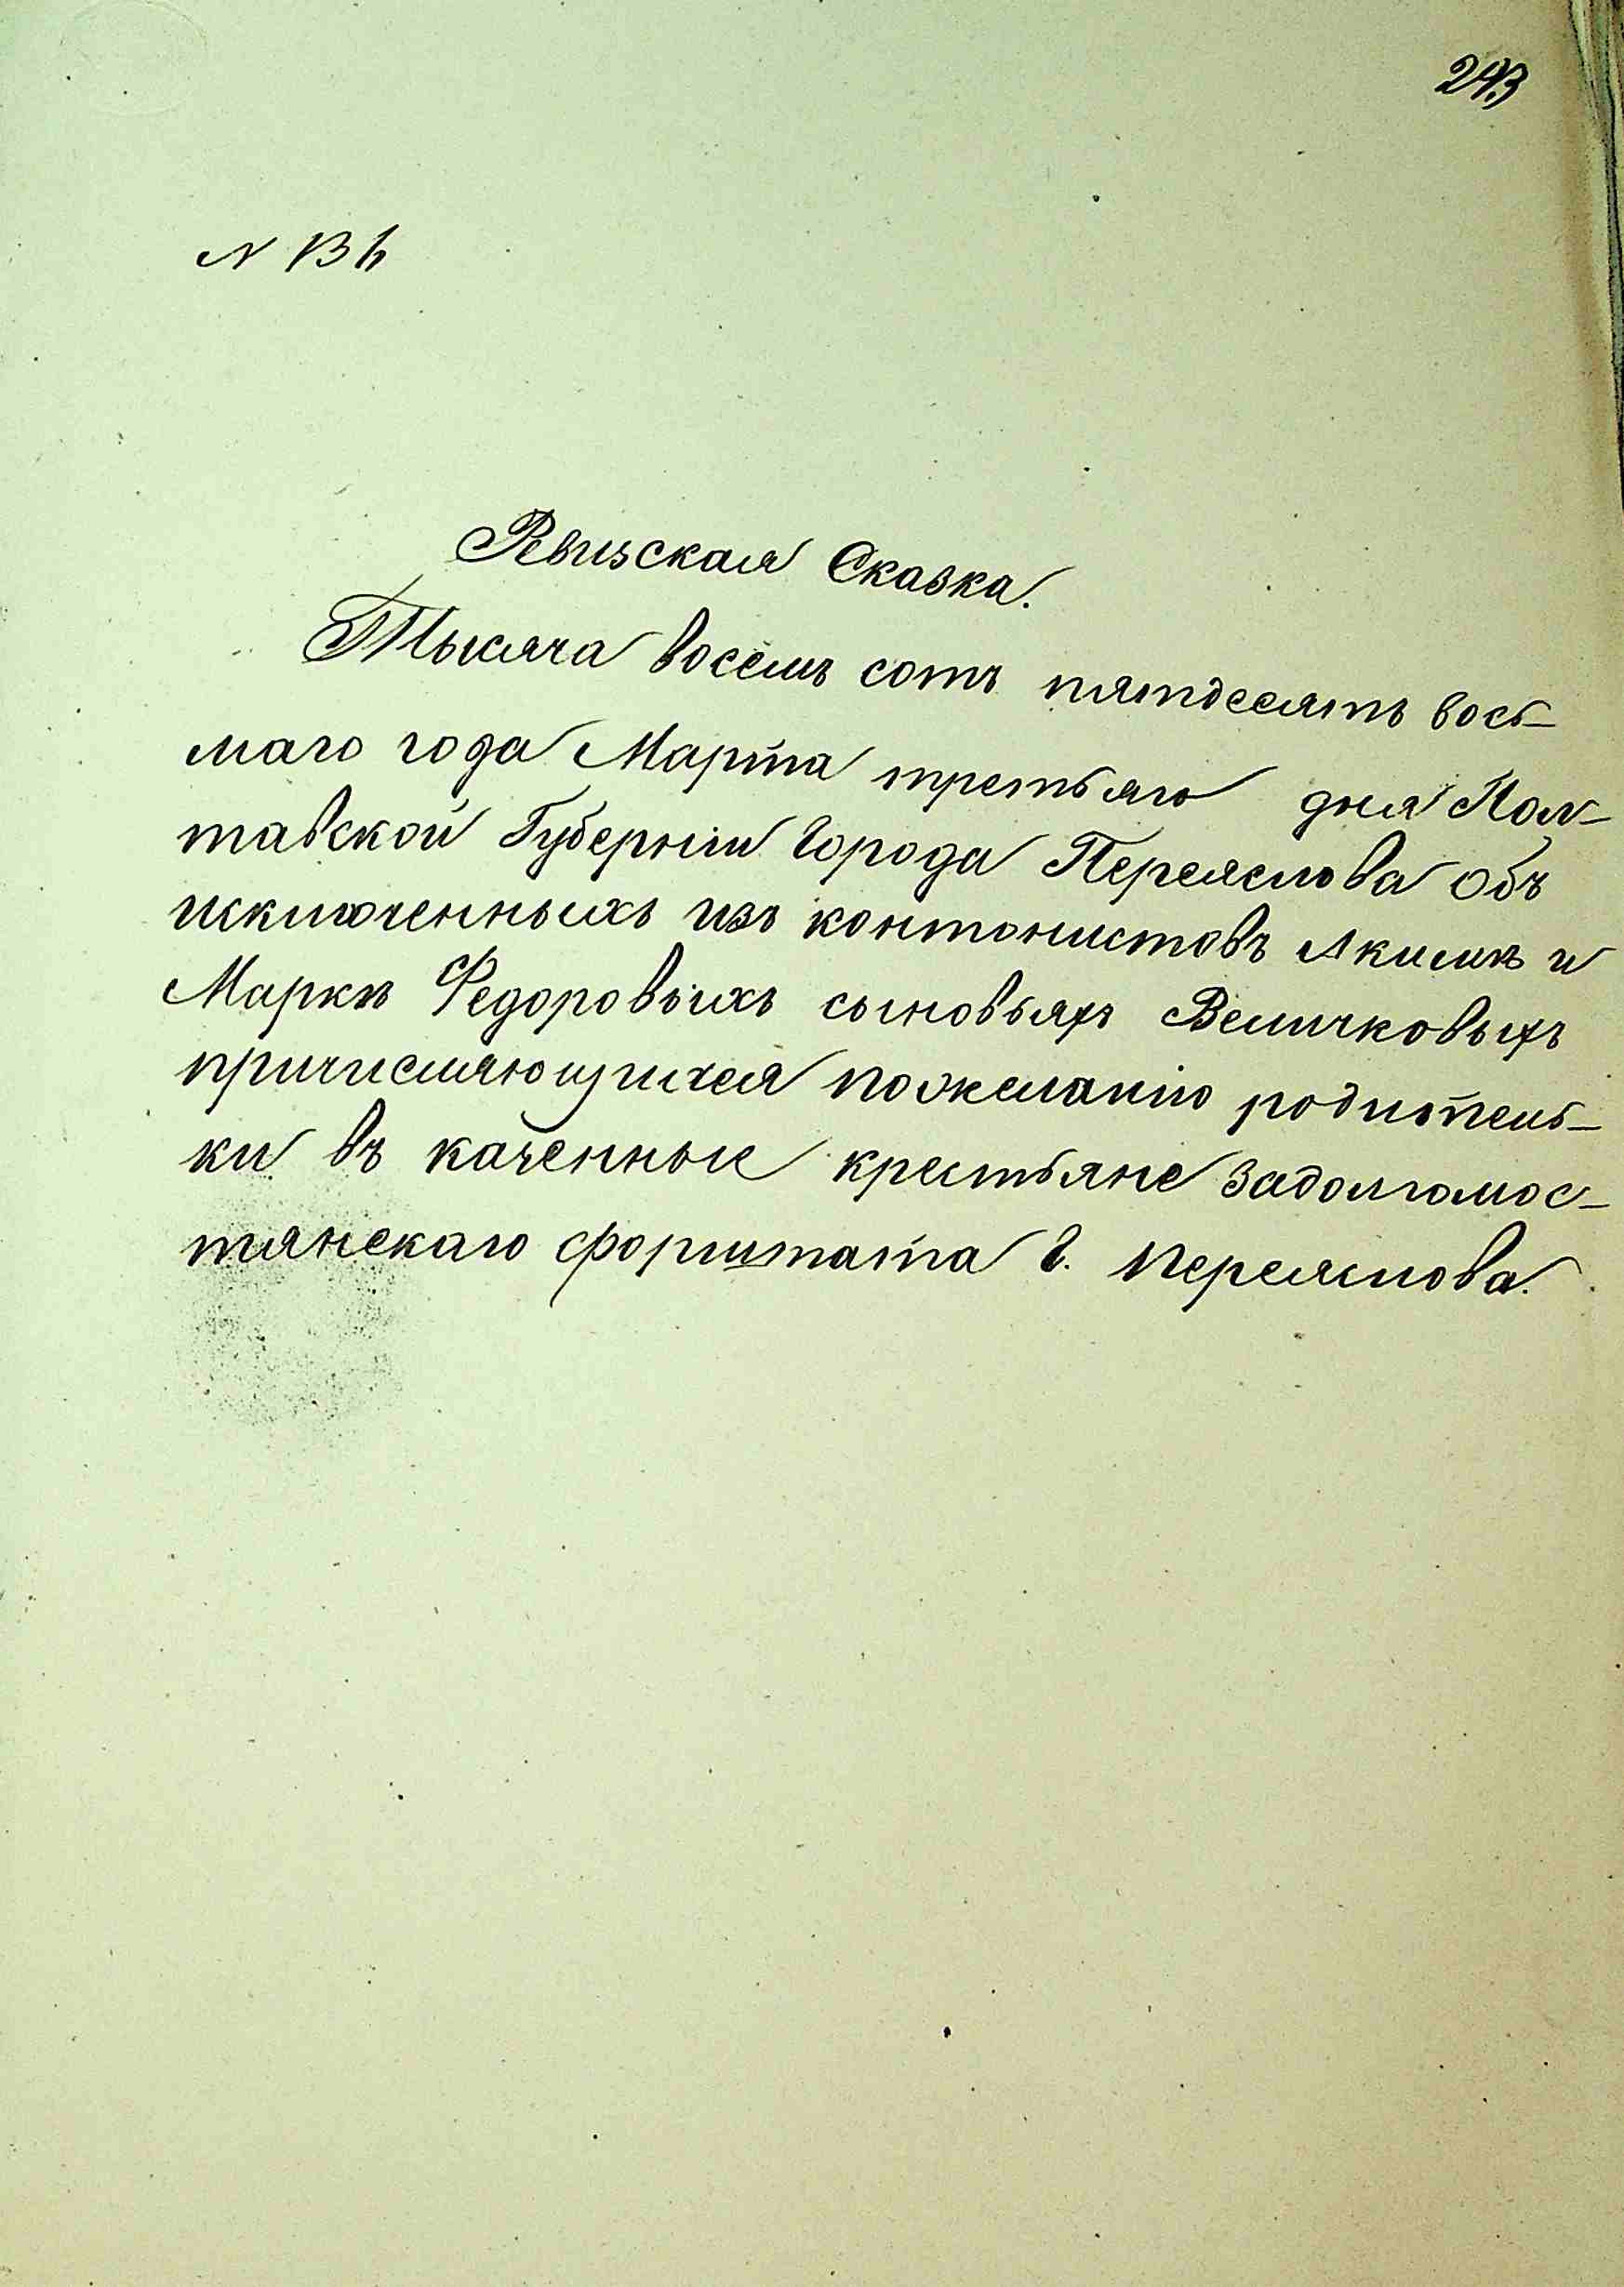 243
N 136
Ревизская Сказка.
Тысяча восемь сотъ пятдесятъ вось-
маго года Марта третьяго дня Пол-
тавской Губерніи Города Переяслова объ
исключенныхъ изъ контонистовъ Акимѣ и
Маркѣ Федоровыхъ сыновьяхъ Величковыхъ
причисляющихся пожеланію родитель-
ки въ каченные крестьяне Задолгомос-
тянскаго форштата Г. Переяслова.